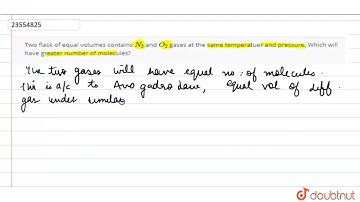 23554825
Two flask of equal volumes contains N₂ and O₂ gases at the same temperatuer and pressure. Which will
have greater number of molecules?
The two gases will have equal no: of molecules.
This is a/c to Avogadro law, equal vol of diff.
gas under similar
doubtnut